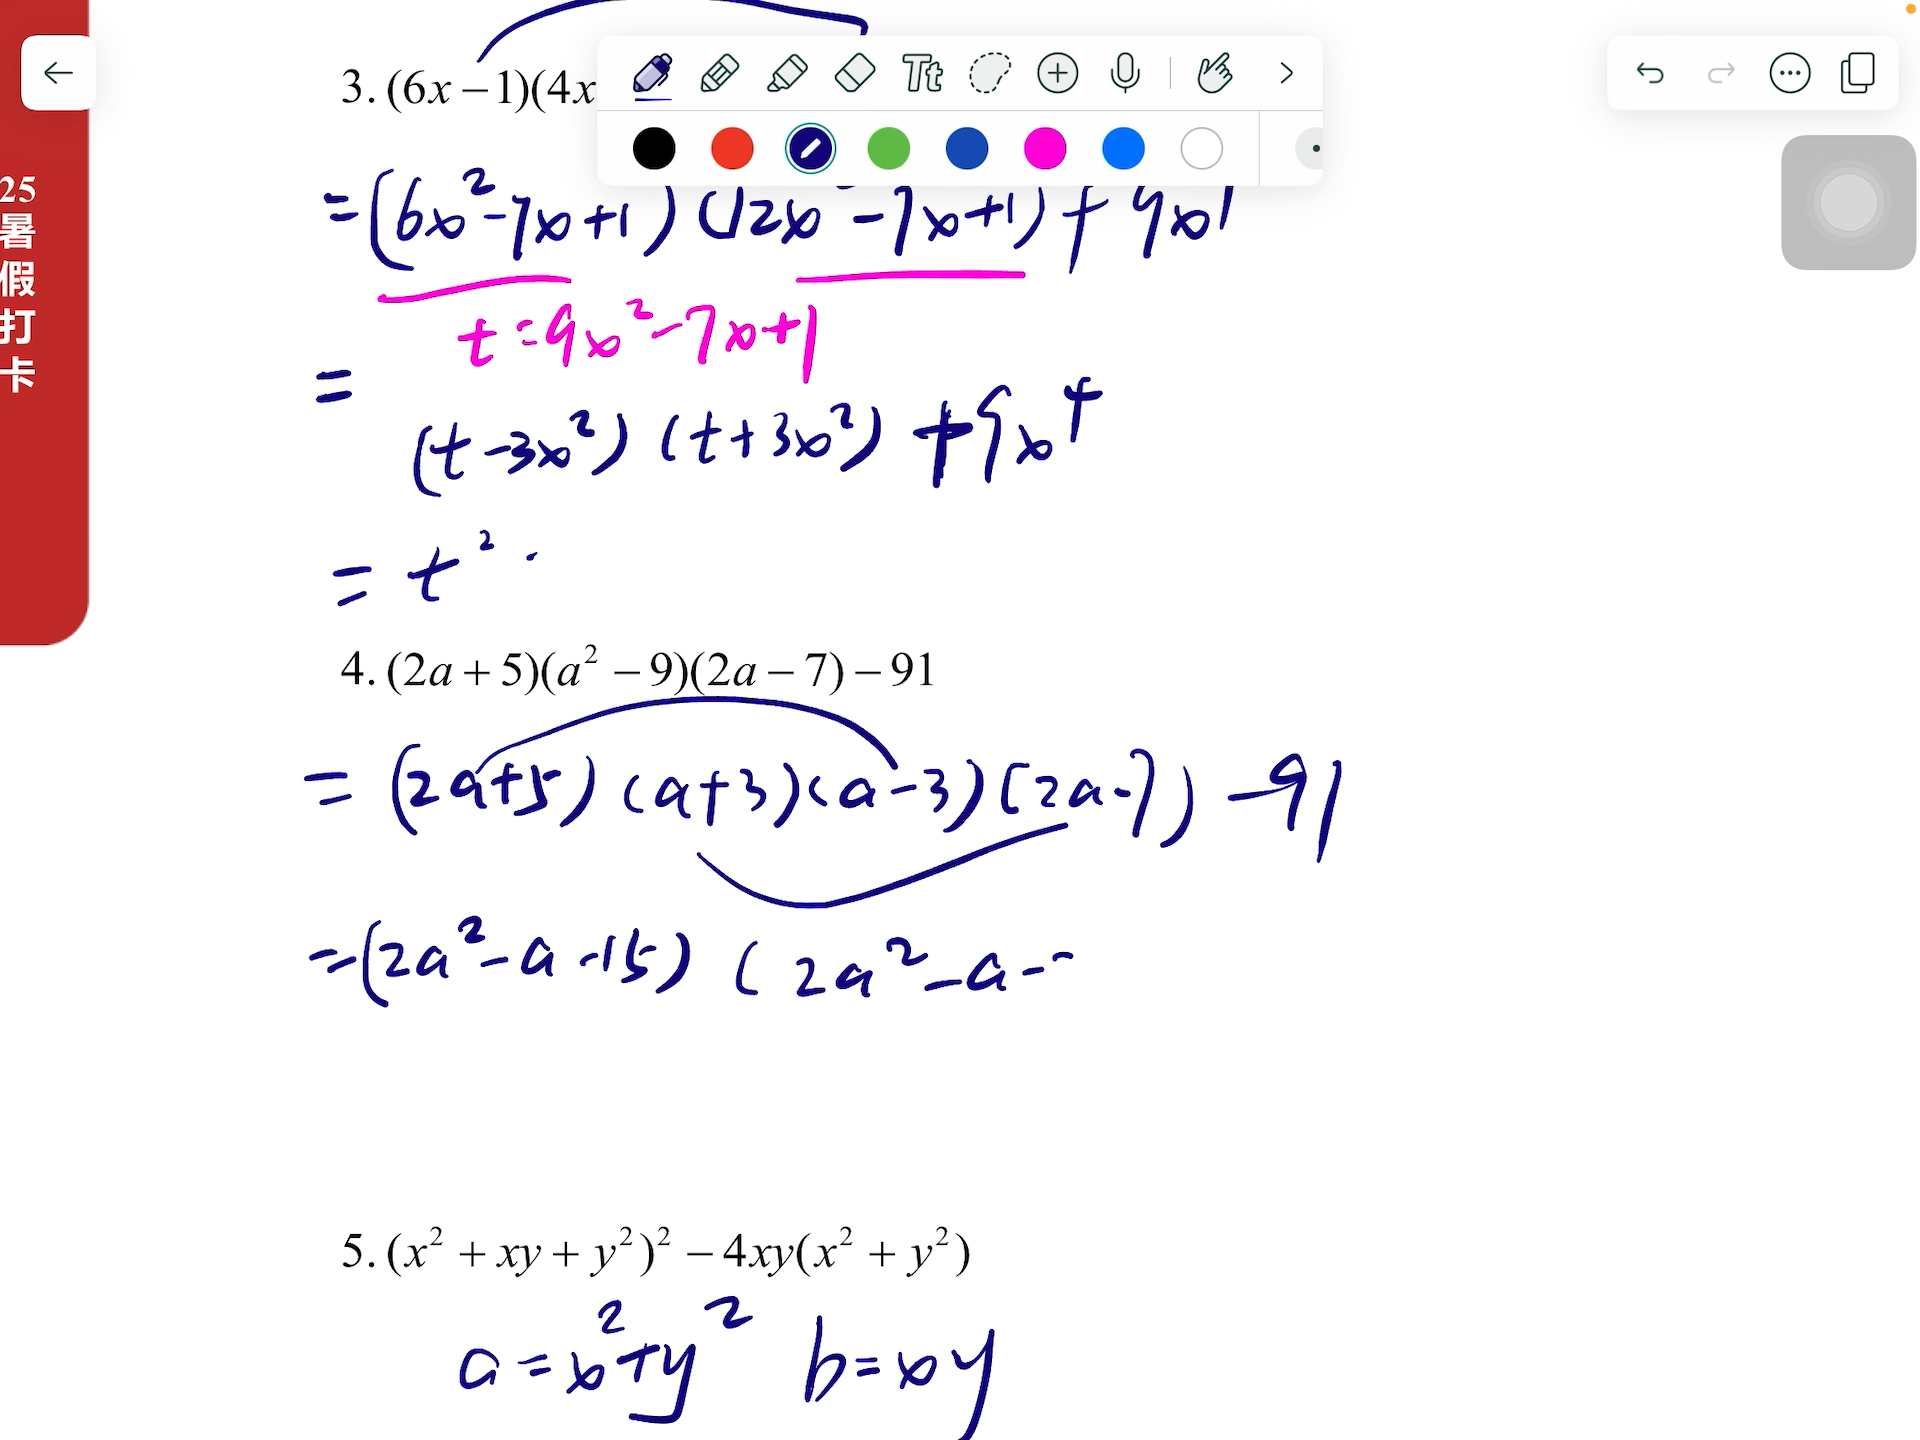 3. (6x − 1)(4x
= (6x² - 7x + 1) (12x² - 7x + 1) + 9x⁴
t = 9x² - 7x + 1
=
(t - 3x²) (t + 3x²) + 9x⁴
= t² ·
4. (2a + 5)(a² − 9)(2a − 7) − 91
= (2a+5) (a+3)(a-3)(2a-7) - 91
= (2a² - a - 15) (2a² - a -
5. (x² + xy + y²)² − 4xy(x² + y²)
a = x² + y² b = xy
25
暑
假
打
卡
Tt